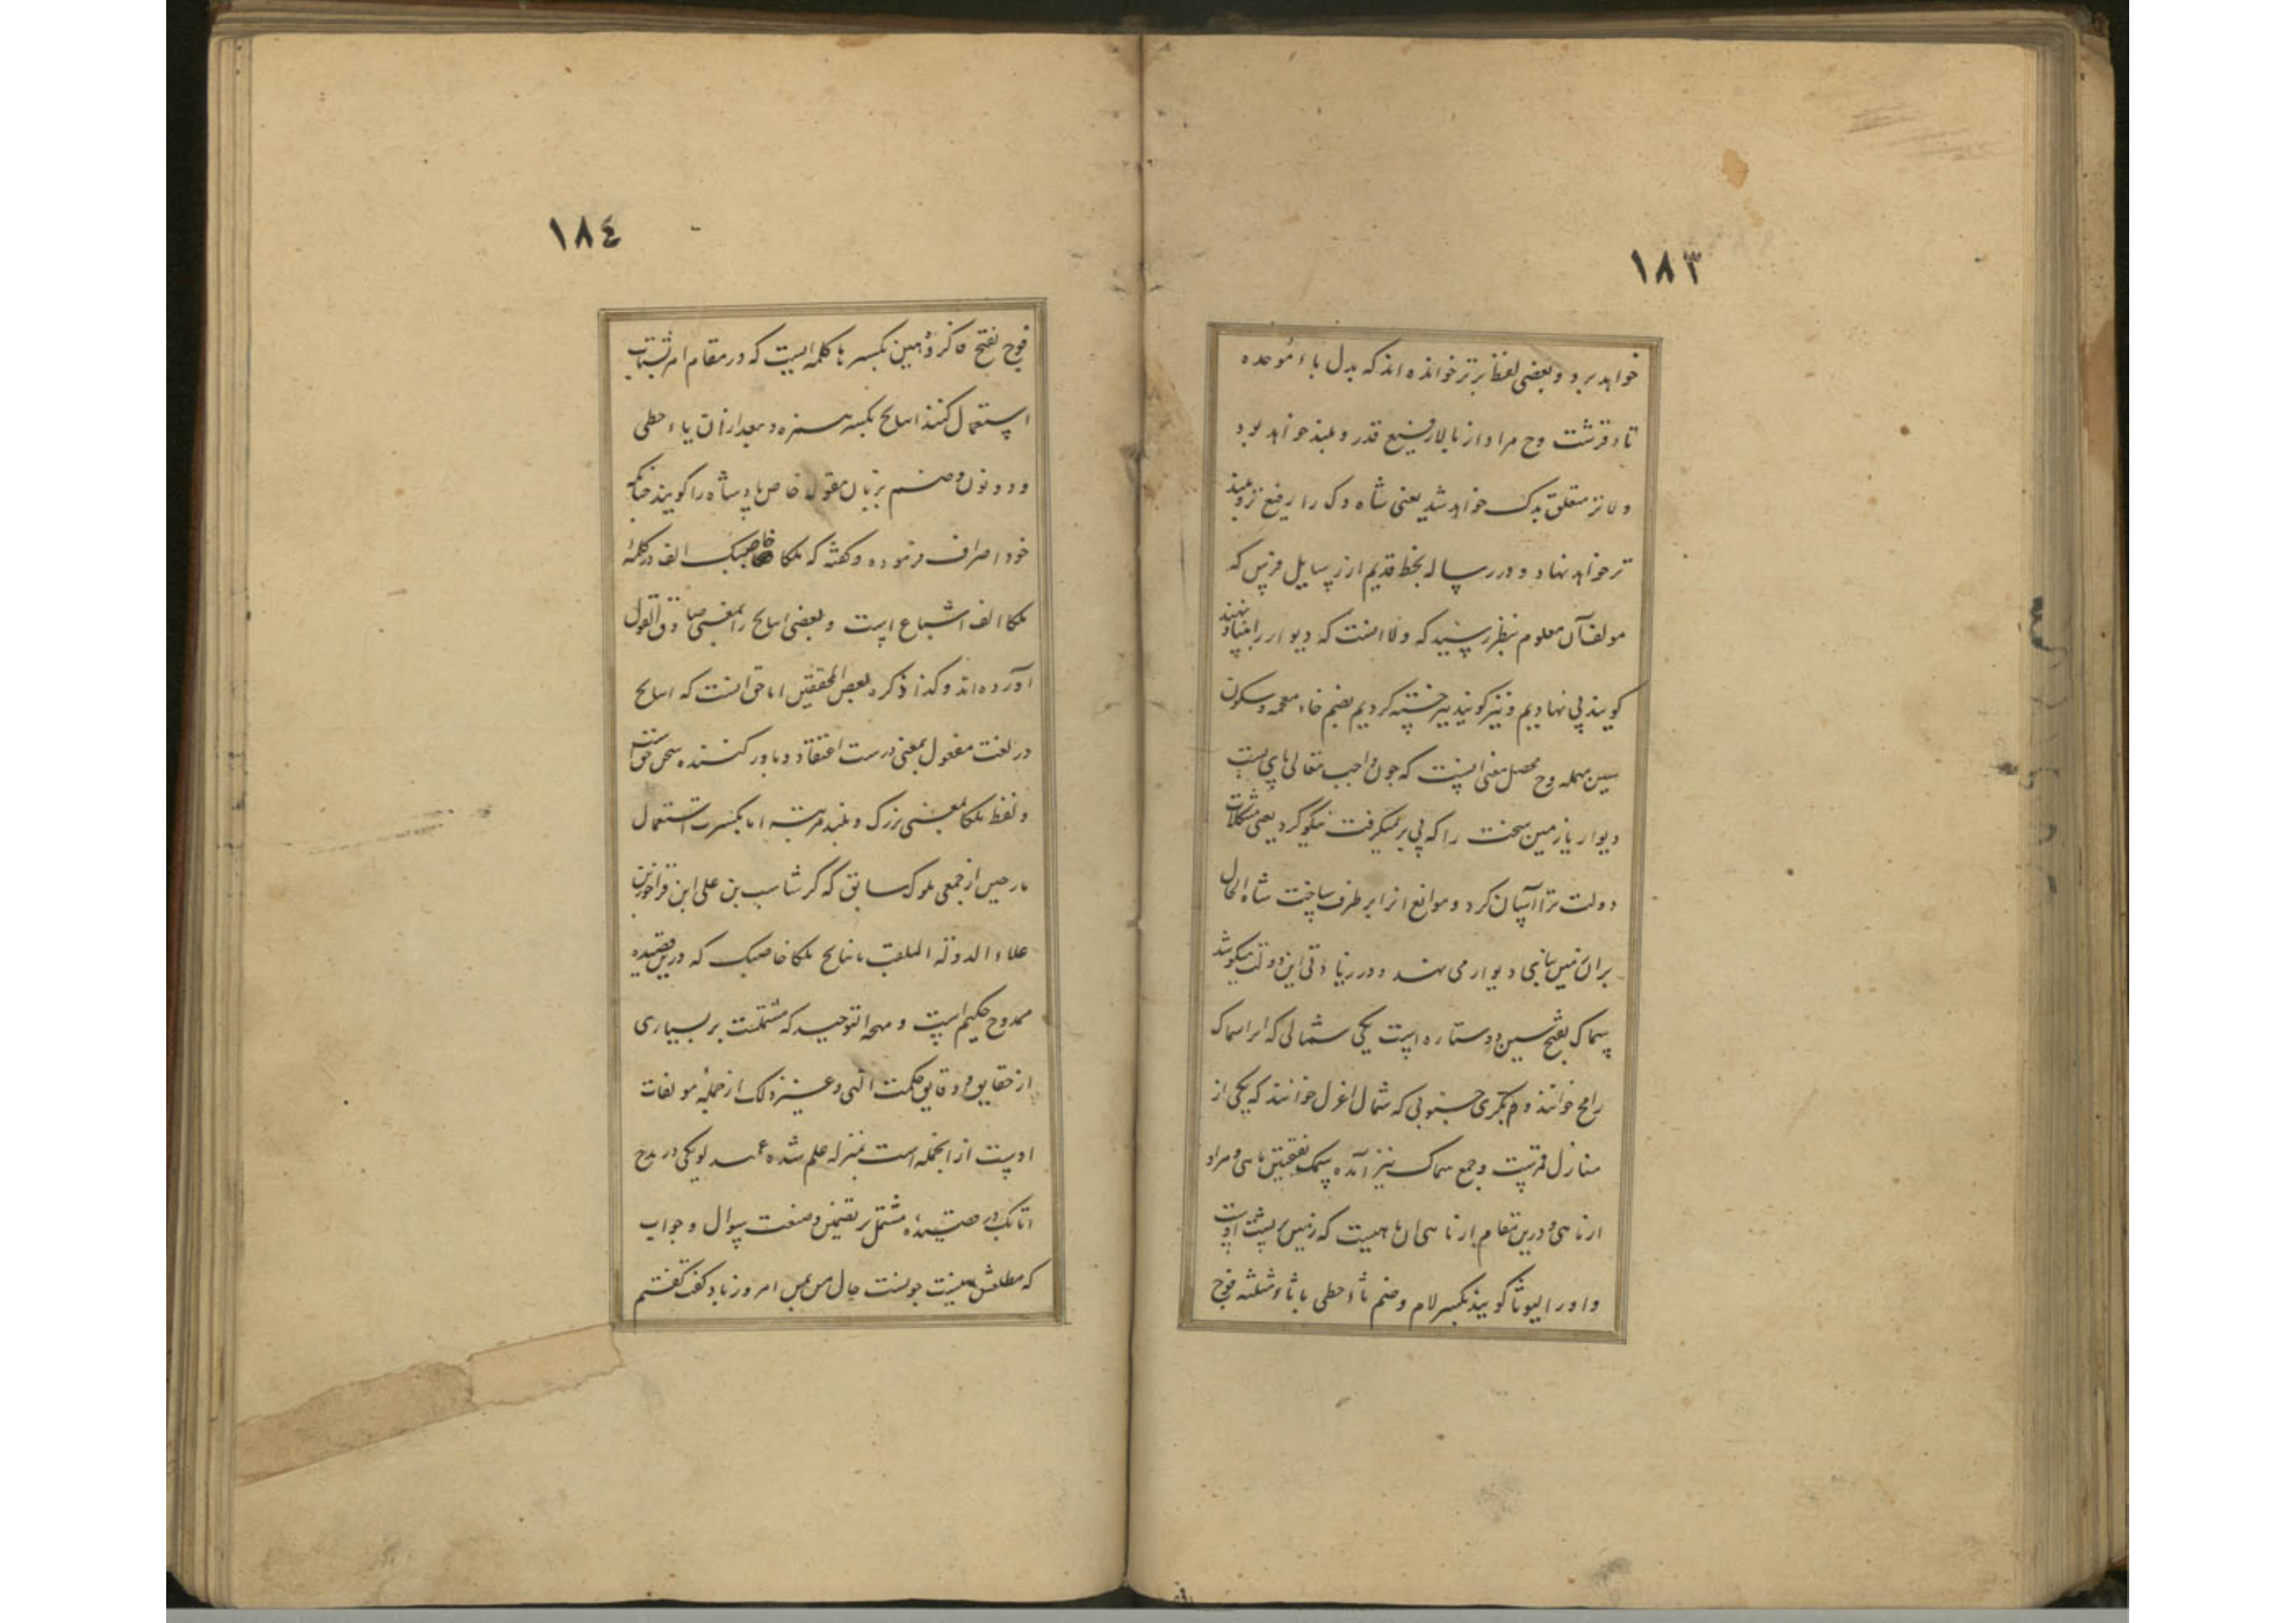 ١٨٣
خواهد برد و بعضی لفظ برتر خوانده اند که بدل باء موحده
تاء قرشت وح مراد از بالا رفیع قدر و بلند خواهد بود
و لا تر متعلق بدک خواهد شد یعنی شاه دک را رفیع تر و بلند
تر خواهد نهاد و در رساله بخط قدیم از رسایل فرس که
مولف آن معلوم نبظر رسید که ولا انست که دیوار را بنیاد نهند
کویند پی نهادیم و نیز کویند پی خسته کردیم بضم خاء معجمه و سکون
سین مهمله وح محصل معنی اینست که چون واجب تعالی پای بست
دیوار یا زمین سخت را که پی بر نمیکرفت نیکو کرد یعنی مشکلات
دولت ترا آسان کرد و موانع انرا بر طرف ساخت شاه الحال
بران زمین پی دیوار می نهند و در زیادتی این دولت میکوشد
سماک بفتح سین دو ستاره است یکی شمالی که انرا سماک
رامح خوانند و دیکری جنوبی که شمال اعزل خوانند که یکی از
منازل قمرست و جمع سماک نیز آمده سمک بفتحین ماهی و مراد
از ماهی درین مقام از ماهی ان ماهیست که زمین بر پشت اوست
و او را لیوثا کویند بکسر لام و ضم یاء حطی با ثاء مثلثه فوح
١٨٤
فوح بفتح فا کروه مین بکسر ها کلمه ایست که در مقام امر بشتاب
استعمال کنند ایناج بکسر همزه و بعد ازان یاء حطی
و دو نون و ضم بزبان مغول خاص پادشاه را کویند چنانکه
خود اصراف فرموده و کفته که ملکا خاصبک الف در کلمهٔ
ملکا الف اشباع است و بعضی ایناج را بمعنی صادق القول
آورده اند و کذا ذکره بعض المحققین اما حق انست که ایناج
در لغت مغول بمعنی درست اعتقاد و باور کننده سخن حق است
و لفظ ملکا بمعنی بزرک و بلند مرتبه اما بکسرت استعمال
از جمعی ملوک سابق که کرشاسب بن علی ابن فرامرز بن
علاء الدوله الملقب ایناج ملکا خاصبک که درین قصیده
ممدوح حکیم است و مهجة التوحید که مشتملست بر بسیاری
از حقایق و دقایق حکمت الهی و غیر ذلک از جمله مولفات
اوست از انجمله است بمنزله علم شده عمید لویکی در مدح
اتابک در قصیده مشتمل بر تضمین و صنعت سوال و جواب
که مطلعش اینست چونست حال امروز باد کف کفتم